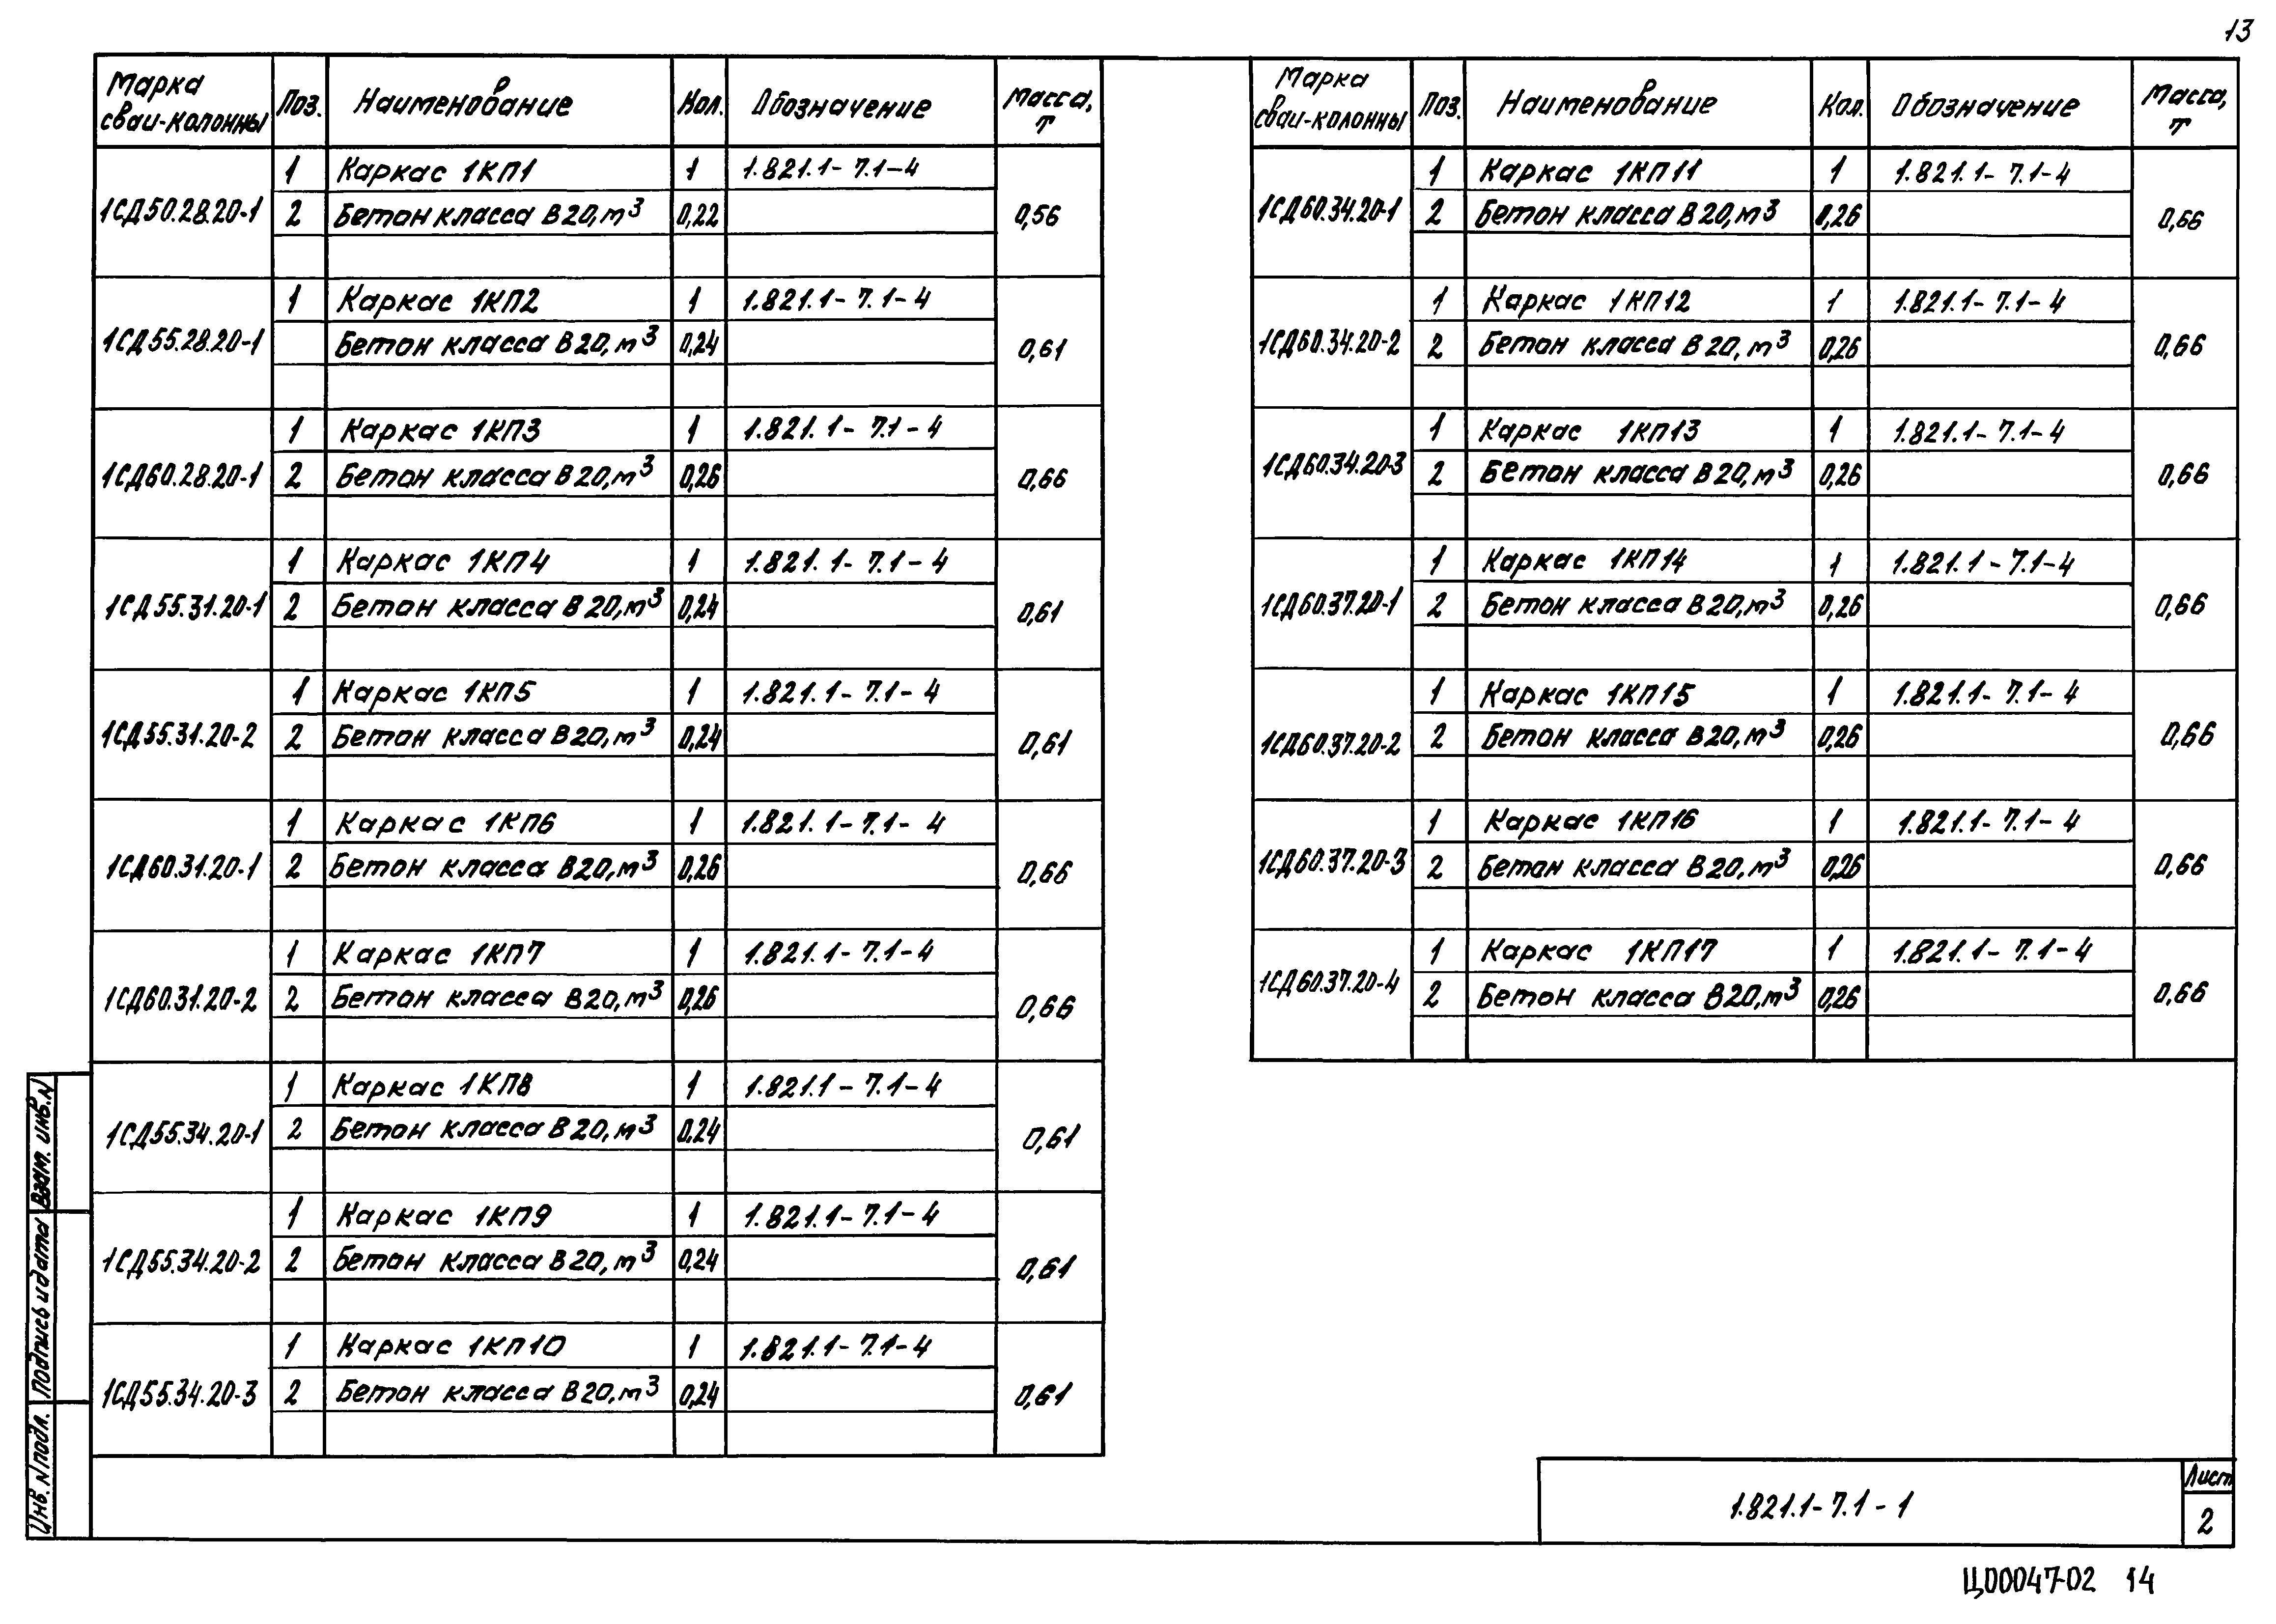 13
Марка сваи-колонны Поз. Наименование Кол. Обозначение Масса, т
1СД50.28.20-1 1 Каркас 1КП1 1 1.821.1-7.1-4 0,56
2 Бетон класса В20, м³ 0,22
1СД55.28.20-1 1 Каркас 1КП2 1 1.821.1-7.1-4 0,61
Бетон класса В20, м³ 0,24
1СД60.28.20-1 1 Каркас 1КП3 1 1.821.1-7.1-4 0,66
2 Бетон класса В20, м³ 0,26
1СД55.31.20-1 1 Каркас 1КП4 1 1.821.1-7.1-4 0,61
2 Бетон класса В20, м³ 0,24
1СД55.31.20-2 1 Каркас 1КП5 1 1.821.1-7.1-4 0,61
2 Бетон класса В20, м³ 0,24
1СД60.31.20-1 1 Каркас 1КП6 1 1.821.1-7.1-4 0,66
2 Бетон класса В20, м³ 0,26
1СД60.31.20-2 1 Каркас 1КП7 1 1.821.1-7.1-4 0,66
2 Бетон класса В20, м³ 0,26
1СД55.34.20-1 1 Каркас 1КП8 1 1.821.1-7.1-4 0,61
2 Бетон класса В20, м³ 0,24
1СД55.34.20-2 1 Каркас 1КП9 1 1.821.1-7.1-4 0,61
2 Бетон класса В20, м³ 0,24
1СД55.34.20-3 1 Каркас 1КП10 1 1.821.1-7.1-4 0,61
2 Бетон класса В20, м³ 0,24
Марка сваи-колонны Поз. Наименование Кол. Обозначение Масса, т
1СД60.34.20-1 1 Каркас 1КП11 1 1.821.1-7.1-4 0,66
2 Бетон класса В20, м³ 0,26
1СД60.34.20-2 1 Каркас 1КП12 1 1.821.1-7.1-4 0,66
2 Бетон класса В20, м³ 0,26
1СД60.34.20-3 1 Каркас 1КП13 1 1.821.1-7.1-4 0,66
2 Бетон класса В20, м³ 0,26
1СД60.37.20-1 1 Каркас 1КП14 1 1.821.1-7.1-4 0,66
2 Бетон класса В20, м³ 0,26
1СД60.37.20-2 1 Каркас 1КП15 1 1.821.1-7.1-4 0,66
2 Бетон класса В20, м³ 0,26
1СД60.37.20-3 1 Каркас 1КП16 1 1.821.1-7.1-4 0,66
2 Бетон класса В20, м³ 0,26
1СД60.37.20-4 1 Каркас 1КП17 1 1.821.1-7.1-4 0,66
2 Бетон класса В20, м³ 0,26
Инв. N подл. Подпись и дата Взам. инв. N
1.821.1-7.1-1
Лист
2
Ц00047-02 14